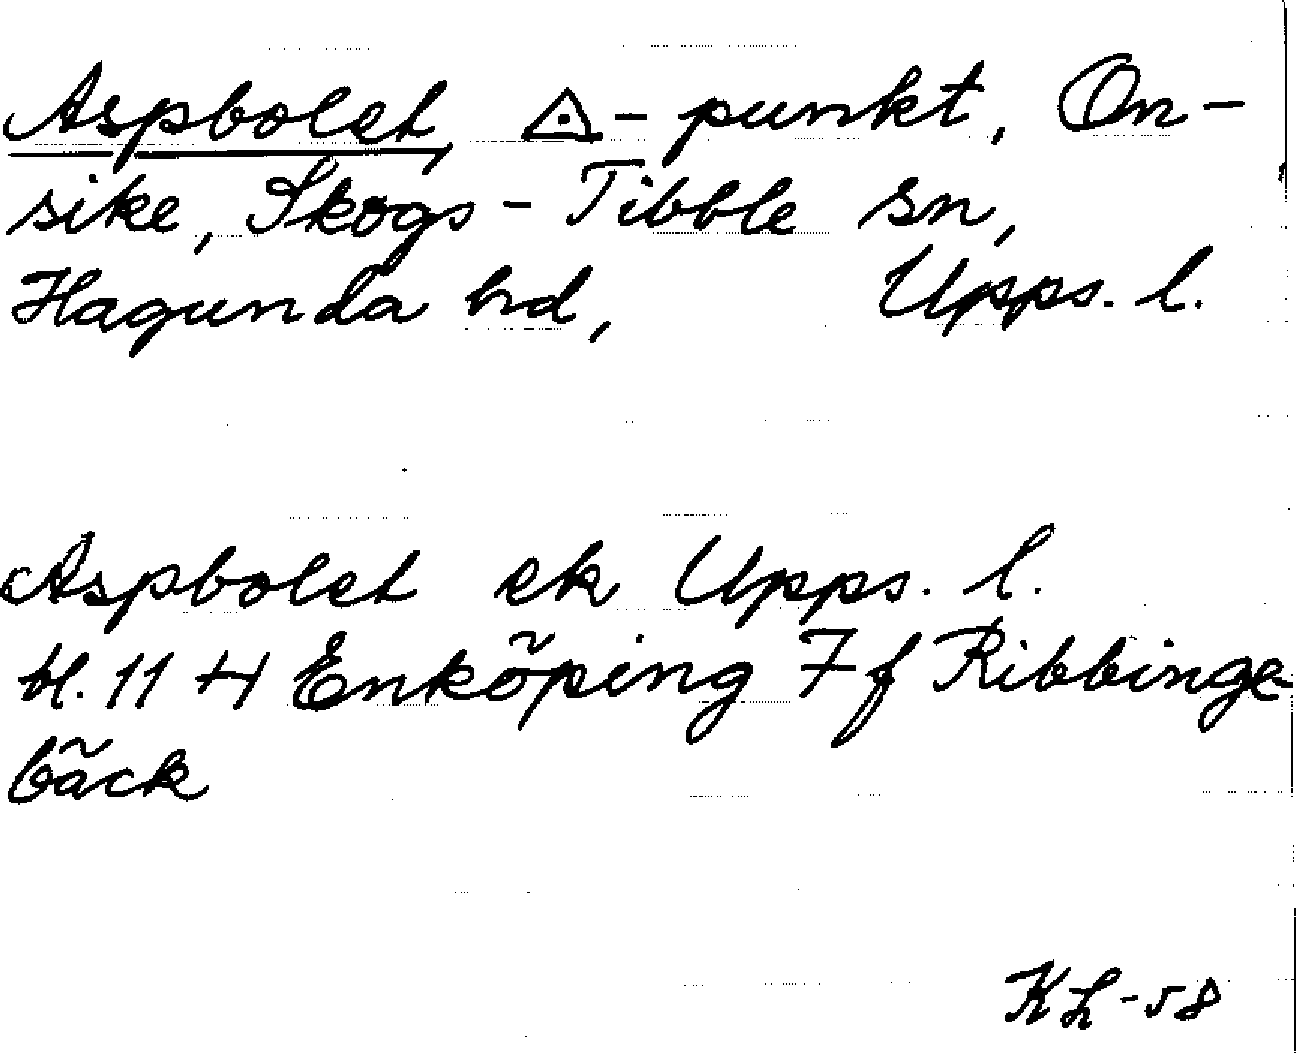 Aspbolet, ◬-punkt, On-
sike, Skogs-Tibble sn,
Hagunda hd, Upps. l.
Aspbolet ek Upps. l.
bl. 11 H Enköping 7 f Ribbinge-
bäck
KL-58